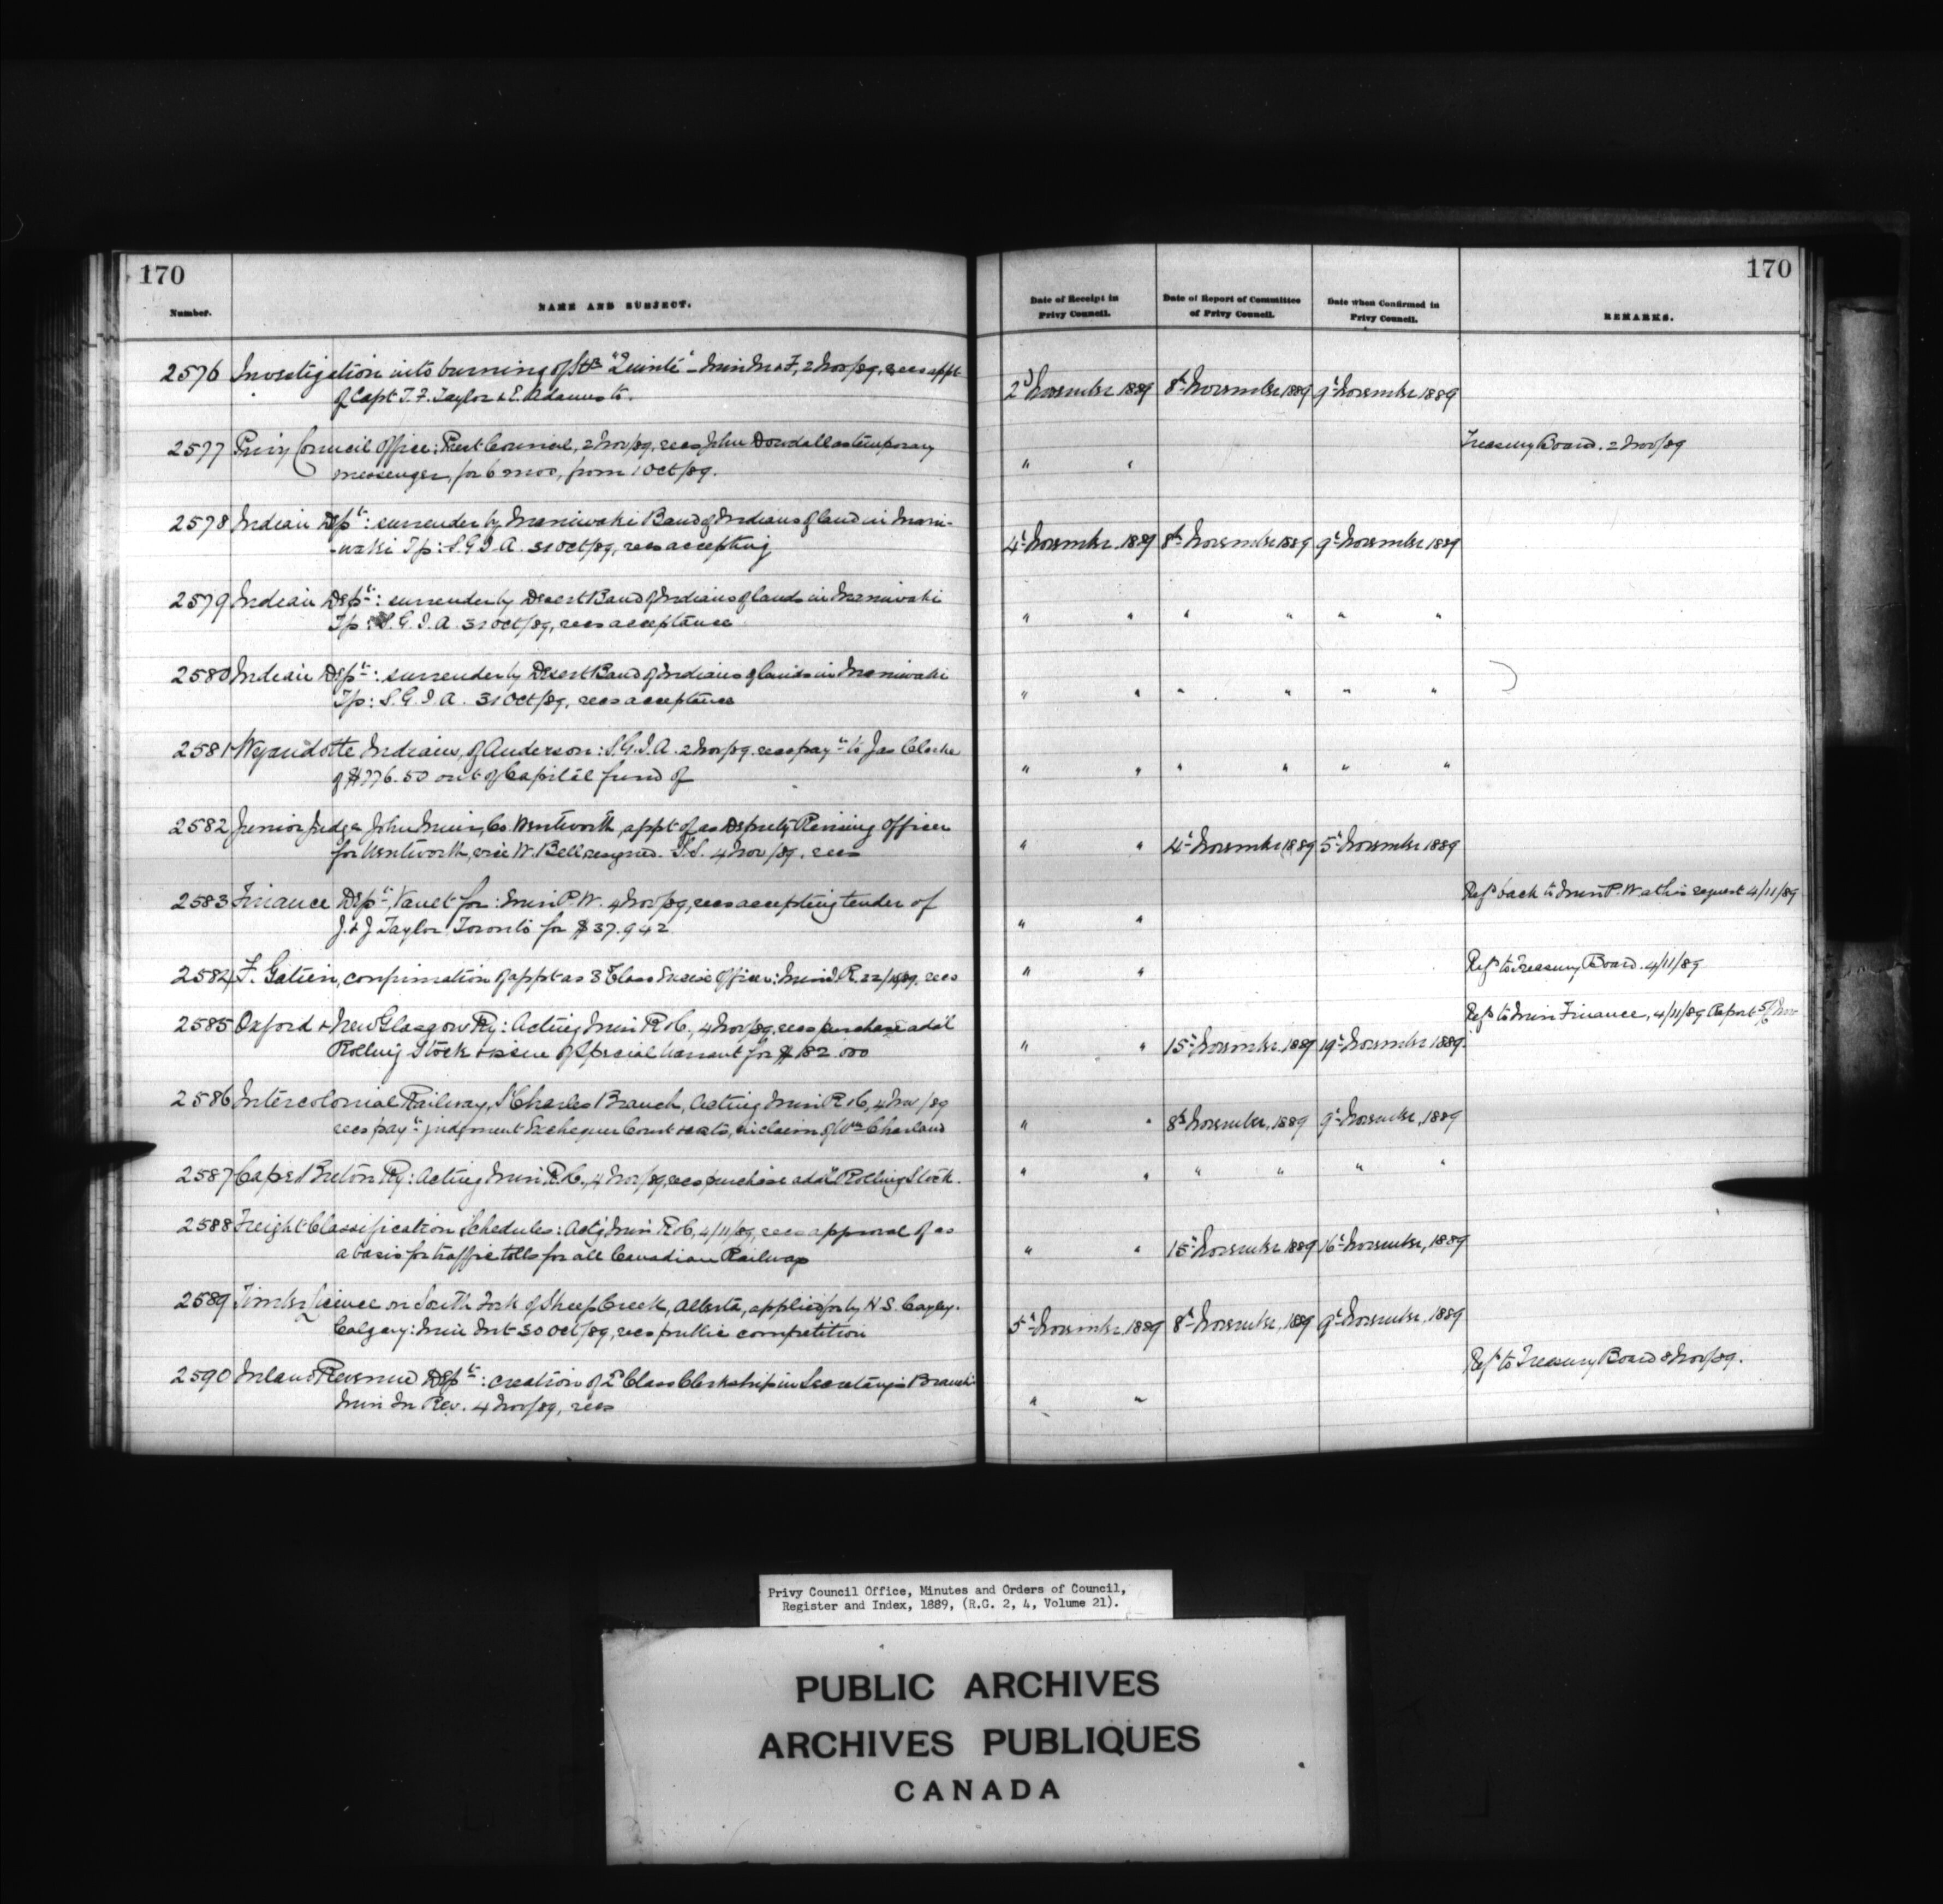 170
170
Number.
NAME AND SUBJECT.
Date of Receipt in
Privy Council.
Date of Report of Committee
of Privy Council.
Date when Confirmed in
Privy Council.
REMARKS.
2576 Investigation into burning of Str "Quinté" - Min M & F, 2 Nov/89, recs appt
of Capt T. F. Taylor & E. Adams to.
2d November 1889 8th November 1889 9th November 1889
2577 Privy Council Office: Prest Council, 2 Nov/89, recs John Dowdall as temporary
messenger, for 6 mos, from 1 Oct/89.
" "
Treasury Board. 2 Nov/89
2578 Indian Dept: surrender by Maniwaki Band of Indians of land in Mani-
-waki Tp: S.G.I.A. 31 Oct/89, recs accepting
4th November 1889 8th November 1889 9th November 1889
2579 Indian Dept: surrender by Desert Band of Indians of lands in Maniwaki
Tp: S.G.I.A. 31 Oct/89, recs acceptance
" " " " " "
2580 Indian Dept: surrender by Desert Band of Indians of lands in Maniwaki
Tp: S.G.I.A. 31 Oct/89, recs acceptance
" " " " " "
2581 Wyandotte Indians, of Anderson: S.G.I.A. 2 Nov/89. recs payt to Jas Clarke
of $776.50 out of Capital fund of
" " " " " "
2582 Junior Judge John Muir, Co. Wentworth, appt of as Deputy Revising Officer
for Wentworth, vice W. Bell, resigned. S.S. 4 Nov/89. recs
" " 4th November 1889 5th November 1889
2583 Finance Dept, Vault for: Min P.W. 4 Nov/89, recs accepting tender of
J. & J. Taylor Toronto for $37.942
" "
Refd back to Min P.W. at his request 4/11/89
2584 F. Gatien, confirmation of appt as 3 Class Excise Officer: Min I.R. recs
" "
Refd to Treasury Board. 4/11/89
2585 Oxford & New Glasgow Ry: Acting Min R & C, 4 Nov/89, recs purchase add'l
Rolling Stock & issue of Special Warrant for $182.000
" " 15th November 1889 19th November 1889.
Refd to Min Finance, 4/11/89 Report Nov
2586 Intercolonial Railway, St Charles Branch, Acting Min R & C, 4 Nov/89
recs payt judgment Exchequer Court & costs, in claim of Wm Charland
" " 8th November, 1889 9th November, 1889
2587 Cape Breton Ry: Acting Min R & C, 4 Nov/89, recs purchase add'l Rolling Stock.
" " " " " "
2588 Freight Classification Schedules: Actg Min R & C, 4/11/89, recs approval of as
a basis for traffic tolls for all Canadian Railways
" " 15th November 1889 16th November, 1889
2589 Timber license on South Fork of Sheep Creek, Alberta, applied for by H. S. Cayley.
Calgary: Min Int 30 Oct/89, recs public competition
5th November 1889 8th November, 1889 9th November, 1889
2590 Inland Revenue Dept: creation of 2d Class Clerkship in Secretary's Branch
Min In Rev. 4 Nov/89, recs
" "
Refd to Treasury Board 8 Nov/89.
Privy Council Office, Minutes and Orders of Council,
Register and Index, 1889, (R.G. 2, 4, Volume 21).
PUBLIC ARCHIVES
ARCHIVES PUBLIQUES
CANADA